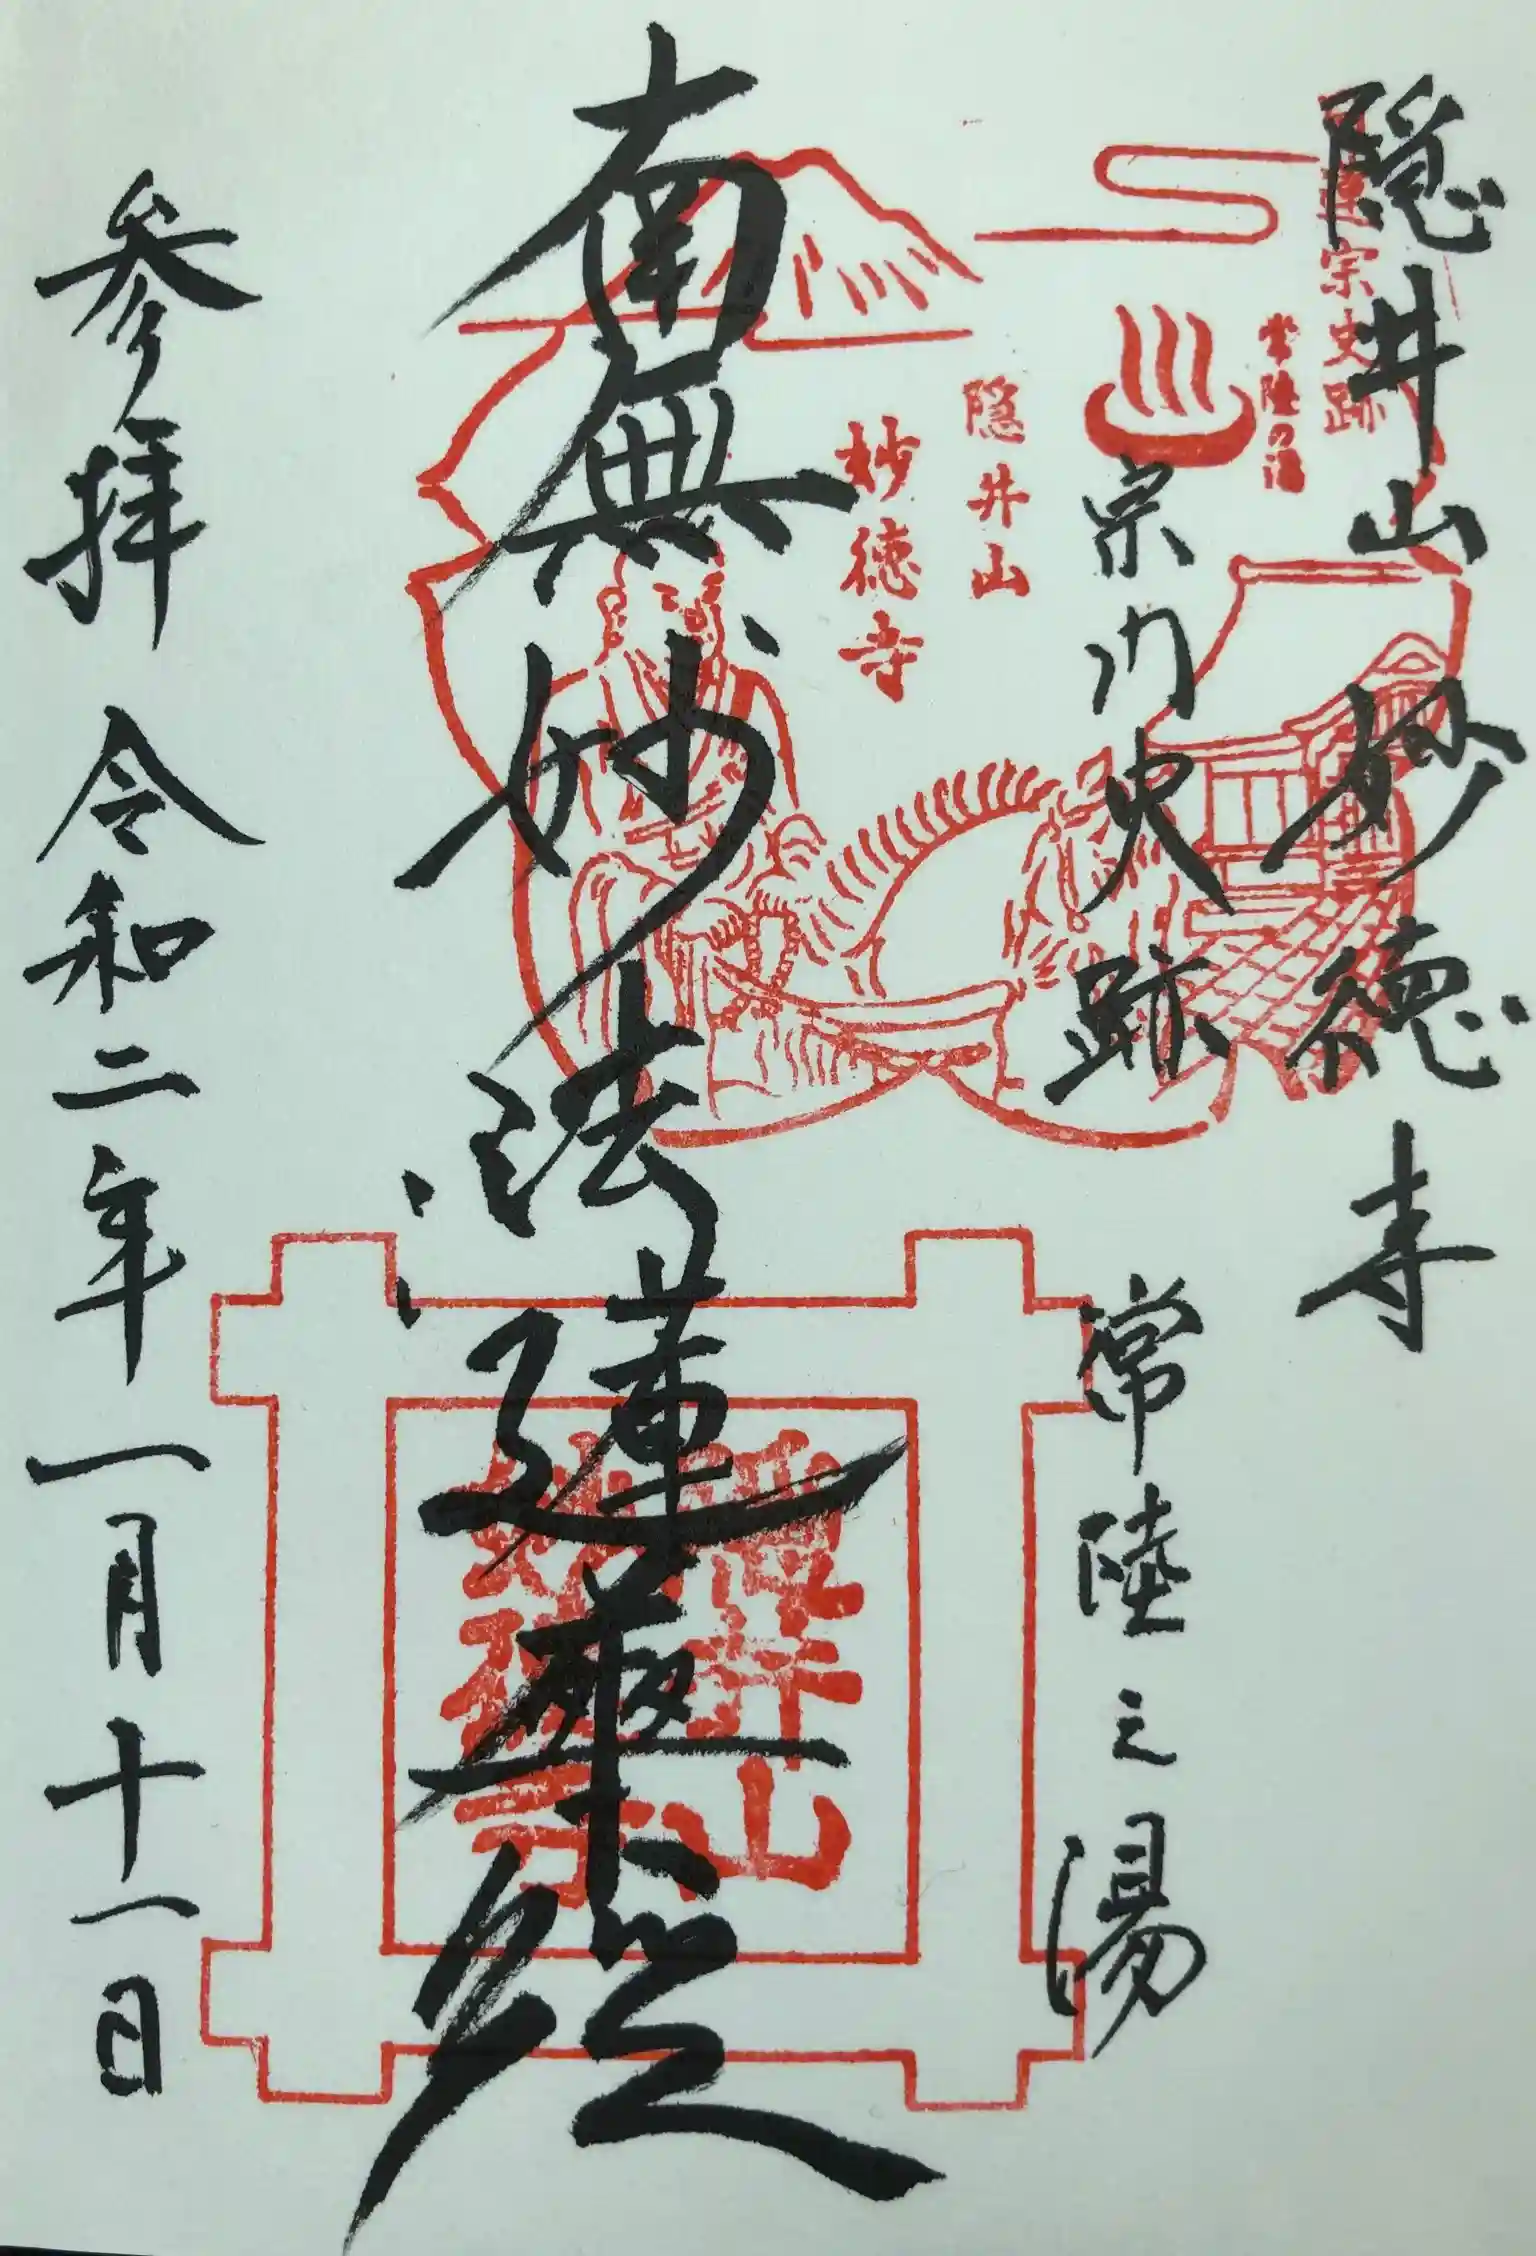 隠井山 妙徳寺
宗門史跡 常陸之湯
南無妙法蓮華経
参拝 令和二年一月十一日
日蓮宗史跡
常陸の湯
隠井山
妙徳寺
隠井山
妙徳寺